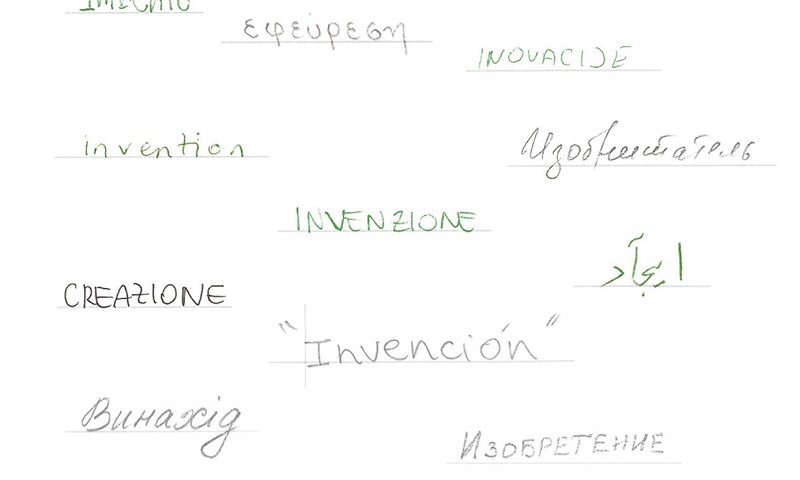 εφεύρεση
INOVACIJE
invention
Изобретатель
INVENZIONE
ایجآد
CREAZIONE
"Invención"
Винахід
ИЗОБРЕТЕНИЕ